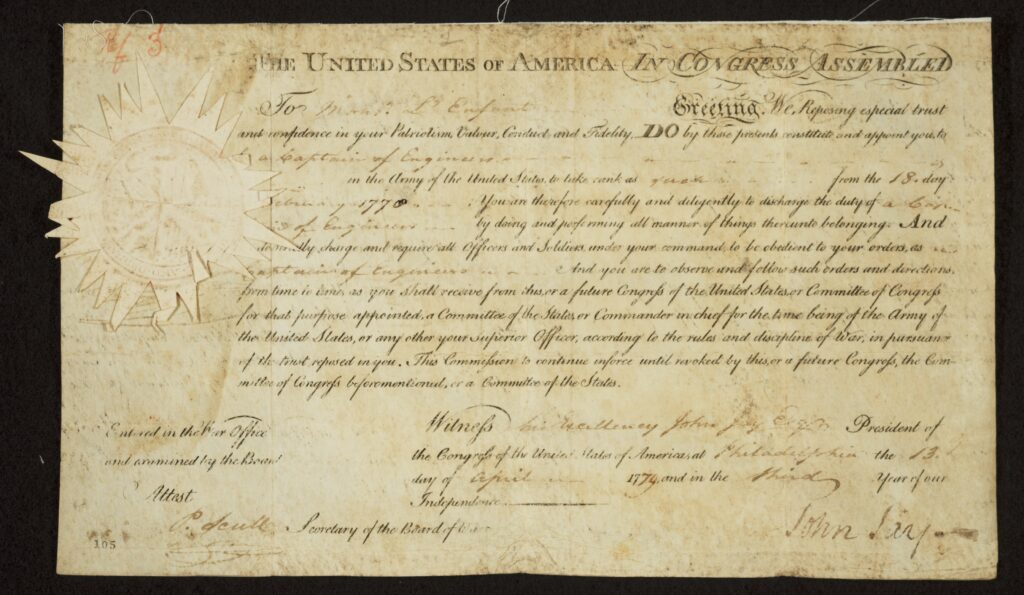 No 3.
THE UNITED STATES OF AMERICA IN CONGRESS ASSEMBLED
To Monsr. L'Enfant Greeting. We Reposing especial trust
and confidence in your Patriotism, Valour, Conduct, and Fidelity, DO by these presents constitute and appoint you, to
be a Captain of Engineers
in the Army of the United States, to take rank as such from the 18. day
February 1778. You are therefore carefully and diligently to discharge the duty of a Cap-
of Engineers by doing and performing all manner of things thereunto belonging. And
do strictly charge and require all Officers and Soldiers, under your command, to be obedient to your orders, as
Captain of Engineers And you are to observe and follow such orders and directions,
from time to time, as you shall receive from this, or a future Congress of the United States, or Committee of Congress
for that purpose appointed, a Committee of the States, or Commander in chief for the time being of the Army of
the United States, or any other your superior Officer, according to the rules and discipline of War, in pursuan
of the trust reposed in you. This Commission to continue in force until revoked by this, or a future Congress, the Com-
mittee of Congress beforementioned, or a Committee of the States.
Entered in the War Office
and examined by the Board
Attest
P. Scull Secretary of the Board of War
Witness his Excellency John Jay Esqr. President of
the Congress of the United States of America, at Philadelphia the 13.
day of April 1779, and in the third Year of our
Independence
John Jay
105